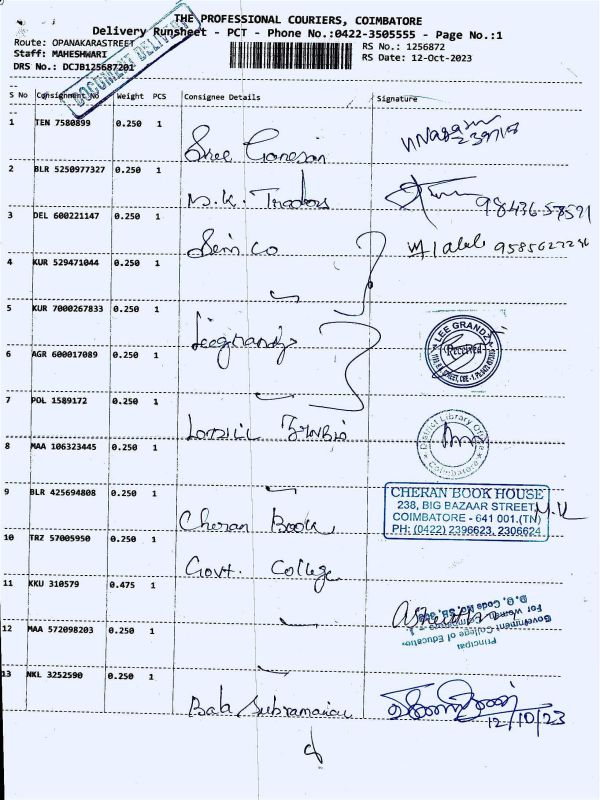 THE PROFESSIONAL COURIERS, COIMBATORE
Delivery Runsheet - PCT - Phone No.:0422-3505555 - Page No.:1
Route: OPANAKARASTREET
Staff: MAHESHWARI
DRS No.: DCJB125687201
RS No.: 1256872
RS Date: 12-Oct-2023
DOCUMENT DELIVERY
S No Consignment No Weight PCS Consignee Details Signature
1 TEN 7580899 0.250 1
Sree Ganesan
2 BLR 5250977327 0.250 1
M.K. Traders 98436 58591
3 DEL 600221147 0.250 1
4 KUR 529471044 0.250 1
5 KUR 7000267833 0.250 1
Leegrandz
LEE GRANDZ
Received
6 AGR 600017089 0.250 1
7 POL 1589172 0.250 1
District Library Office
Coimbatore
8 MAA 106323445 0.250 1
9 BLR 425694808 0.250 1
Cheran Book
CHERAN BOOK HOUSE
238, BIG BAZAAR STREET,
COIMBATORE - 641 001.(TN)
PH: (0422) 2396623, 2306624
M.K
10 TRZ 57005950 0.250 1
Govt. College
11 KKU 310579 0.475 1
Principal
Government College of Education
For Women, Coimbatore - 1
12 MAA 572098203 0.250 1
13 NKL 3252590 0.250 1
Bala Subramanian
12/10/23